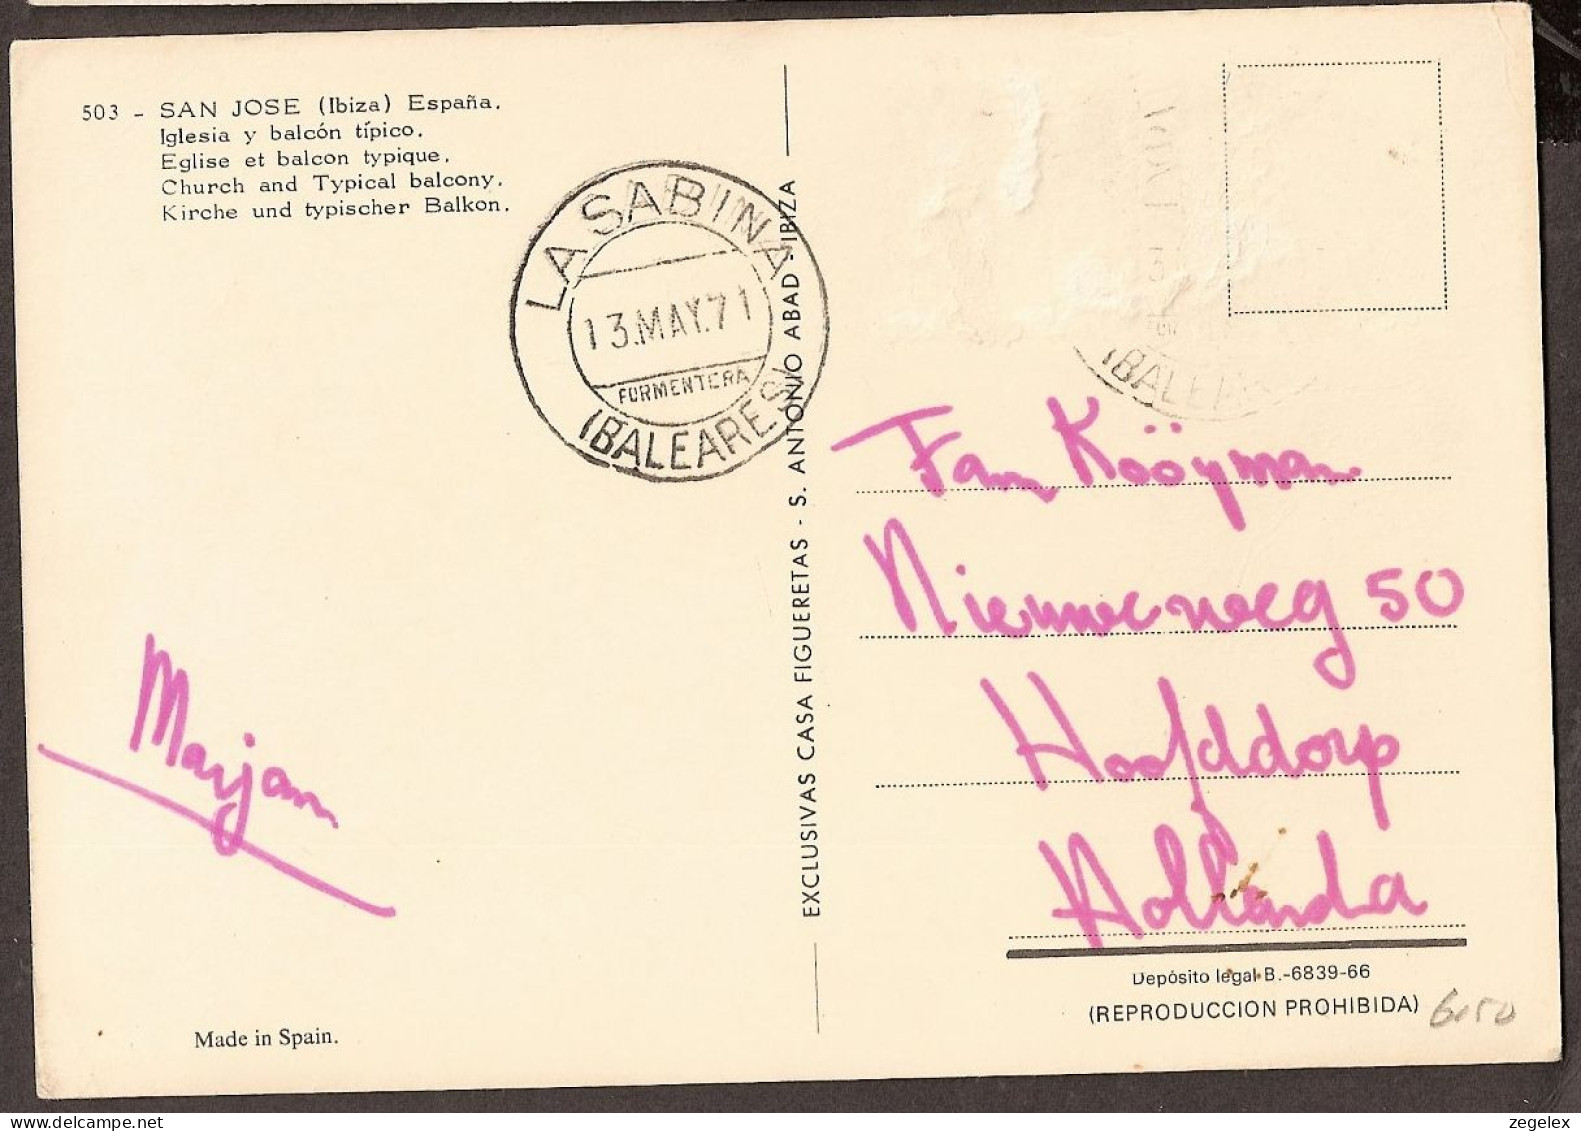 503 - SAN JOSE (Ibiza) España.
Iglesia y balcón típico.
Eglise et balcon typique.
Church and Typical balcony.
Kirche und typischer Balkon.
LA SABINA
13.MAY.71
FORMENTERA
(BALEARES)
EXCLUSIVAS CASA FIGUERETAS - S. ANTONIO ABAD - IBIZA
(BALEARES)
Fam Kööyman
Nieuweweg 50
Hoofddorp
Hollanda
Marjan
Depósito legal B.-6839-66
(REPRODUCCION PROHIBIDA)
6,50
Made in Spain.
zegelex